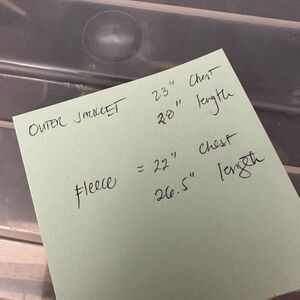 OUTER JACKET 23" Chest
28" length
Fleece = 22" Chest
26.5" length